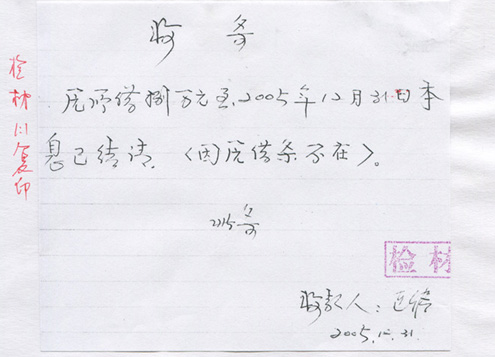 收条
原所借捌万元至2005年12月31日本
息已结清。(因原借条不在)。
收款人:
2005.12.31.
检材1:1复印
检材